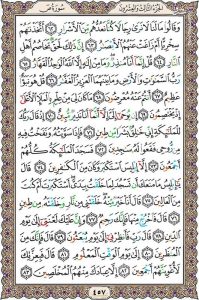 الجزء الثالث والعشرون سورة ص
وَقَالُوا۟ مَا لَنَا لَا نَرَىٰ رِجَالًا كُنَّا نَعُدُّهُم مِّنَ ٱلْأَشْرَارِ ٦٢ أَتَّخَذْنَـٰهُمْ
سِخْرِيًّا أَمْ زَاغَتْ عَنْهُمُ ٱلْأَبْصَـٰرُ ٦٣ إِنَّ ذَٰلِكَ لَحَقٌّ تَخَاصُمُ أَهْلِ
ٱلنَّارِ ٦٤ قُلْ إِنَّمَآ أَنَا۠ مُنذِرٌ وَمَا مِنْ إِلَـٰهٍ إِلَّا ٱللَّهُ ٱلْوَٰحِدُ ٱلْقَهَّارُ ٦٥
رَبُّ ٱلسَّمَـٰوَٰتِ وَٱلْأَرْضِ وَمَا بَيْنَهُمَا ٱلْعَزِيزُ ٱلْغَفَّـٰرُ ٦٦ قُلْ هُوَ نَبَؤٌا۟
عَظِيمٌ ٦٧ أَنتُمْ عَنْهُ مُعْرِضُونَ ٦٨ مَا كَانَ لِىَ مِنْ عِلْمٍۭ بِٱلْمَلَإِ ٱلْأَعْلَىٰٓ
إِذْ يَخْتَصِمُونَ ٦٩ إِن يُوحَىٰٓ إِلَىَّ إِلَّآ أَنَّمَآ أَنَا۠ نَذِيرٌ مُّبِينٌ ٧٠ إِذْ قَالَ رَبُّكَ
لِلْمَلَـٰٓئِكَةِ إِنِّى خَـٰلِقٌۢ بَشَرًا مِّن طِينٍ ٧١ فَإِذَا سَوَّيْتُهُۥ وَنَفَخْتُ فِيهِ
مِن رُّوحِى فَقَعُوا۟ لَهُۥ سَـٰجِدِينَ ٧٢ فَسَجَدَ ٱلْمَلَـٰٓئِكَةُ كُلُّهُمْ
أَجْمَعُونَ ٧٣ إِلَّآ إِبْلِيسَ ٱسْتَكْبَرَ وَكَانَ مِنَ ٱلْكَـٰفِرِينَ ٧٤ قَالَ
يَـٰٓإِبْلِيسُ مَا مَنَعَكَ أَن تَسْجُدَ لِمَا خَلَقْتُ بِيَدَىَّ أَسْتَكْبَرْتَ أَمْ كُنتَ
مِنَ ٱلْعَالِينَ ٧٥ قَالَ أَنَا۠ خَيْرٌ مِّنْهُ خَلَقْتَنِى مِن نَّارٍ وَخَلَقْتَهُۥ مِن طِينٍ ٧٦
قَالَ فَٱخْرُجْ مِنْهَا فَإِنَّكَ رَجِيمٌ ٧٧ وَإِنَّ عَلَيْكَ لَعْنَتِىٓ إِلَىٰ يَوْمِ
ٱلدِّينِ ٧٨ قَالَ رَبِّ فَأَنظِرْنِىٓ إِلَىٰ يَوْمِ يُبْعَثُونَ ٧٩ قَالَ فَإِنَّكَ مِنَ
ٱلْمُنظَرِينَ ٨٠ إِلَىٰ يَوْمِ ٱلْوَقْتِ ٱلْمَعْلُومِ ٨١ قَالَ فَبِعِزَّتِكَ
لَأُغْوِيَنَّهُمْ أَجْمَعِينَ ٨٢ إِلَّا عِبَادَكَ مِنْهُمُ ٱلْمُخْلَصِينَ ٨٣
٤٥٧